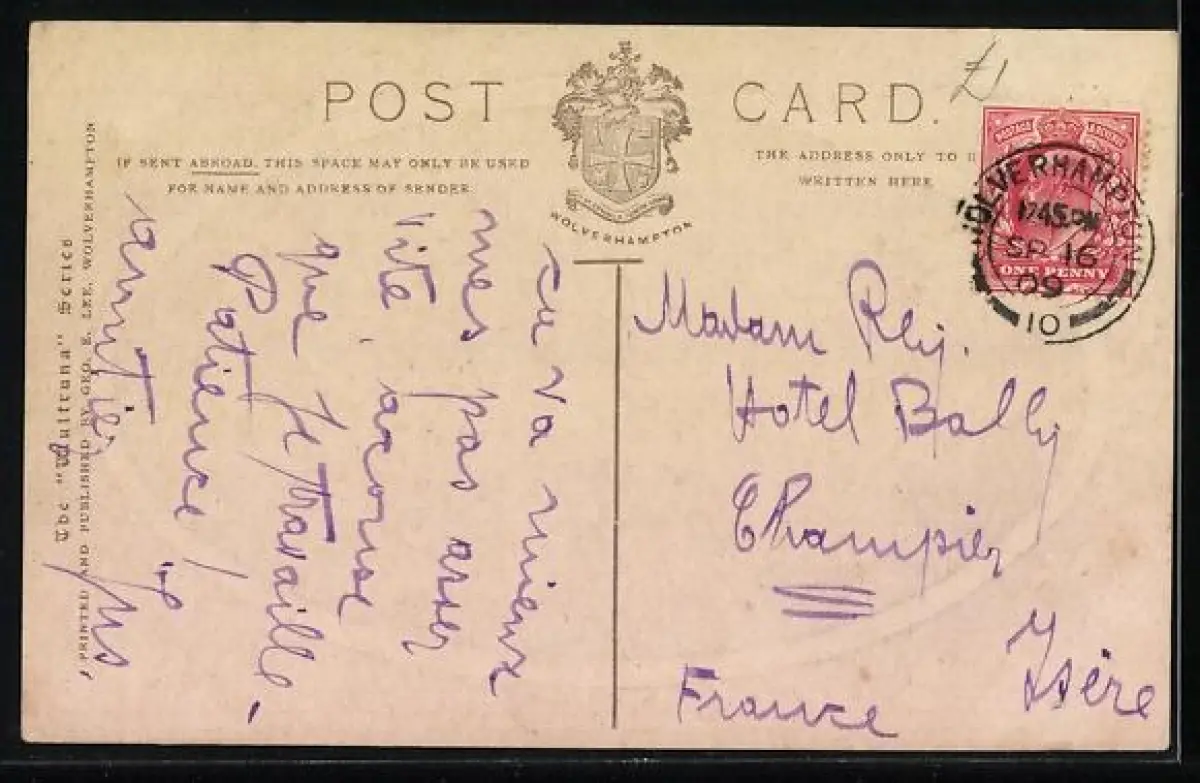 POST CARD.
IF SENT ABROAD, THIS SPACE MAY ONLY BE USED
FOR NAME AND ADDRESS OF SENDER.
THE ADDRESS ONLY TO
WRITTEN HERE
WOLVERHAMPTON
£1
POSTAGE REVENUE
ONE PENNY
WOLVERHAMPTON
12.45 PM
SP 16
09
10
The "Wulfruna" Series
PRINTED AND PUBLISHED BY GEO. E. LEE, WOLVERHAMPTON
va mieux
mes pas assez
vite,
que je travaille.
Patience!
Madam
Hotel Bally
Champier
Isère
France